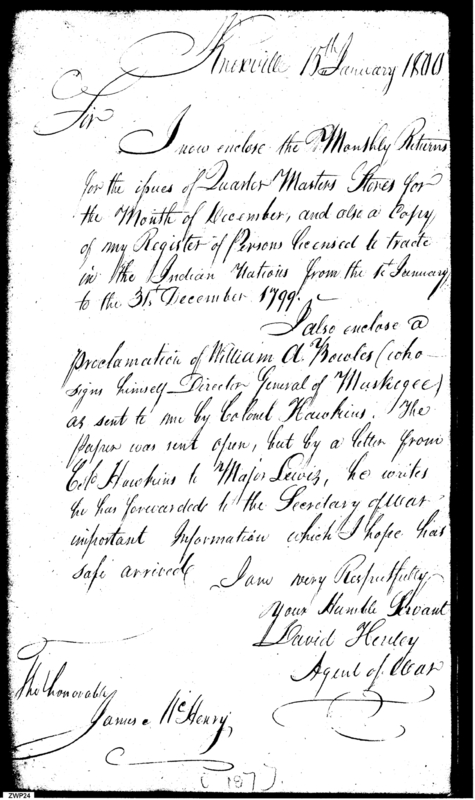 Knoxville 15th January 1800
Sir
I now enclose the Monthly Returns
for the issues of Quarter Masters Stores for
the Month of December, and also a Copy
of my Register of Persons licensed to trade
in the Indian Nations from the 1st January
to the 31st December 1799.
I also enclose a
Proclamation of William A. Bowles (who
signs himself Director General of Muskogee)
as sent to me by Colonel Hawkins. The
Paper was sent open, but by a letter from
Colo Hawkins to Major Lewis, he writes
he has forwarded to the Secretary of War
important Information which I hope has
safe arrived
I am very Respectfully
your Humble Servant
David Henley
Agent of War
The honorable
James McHenry,
(187).
ZWP24